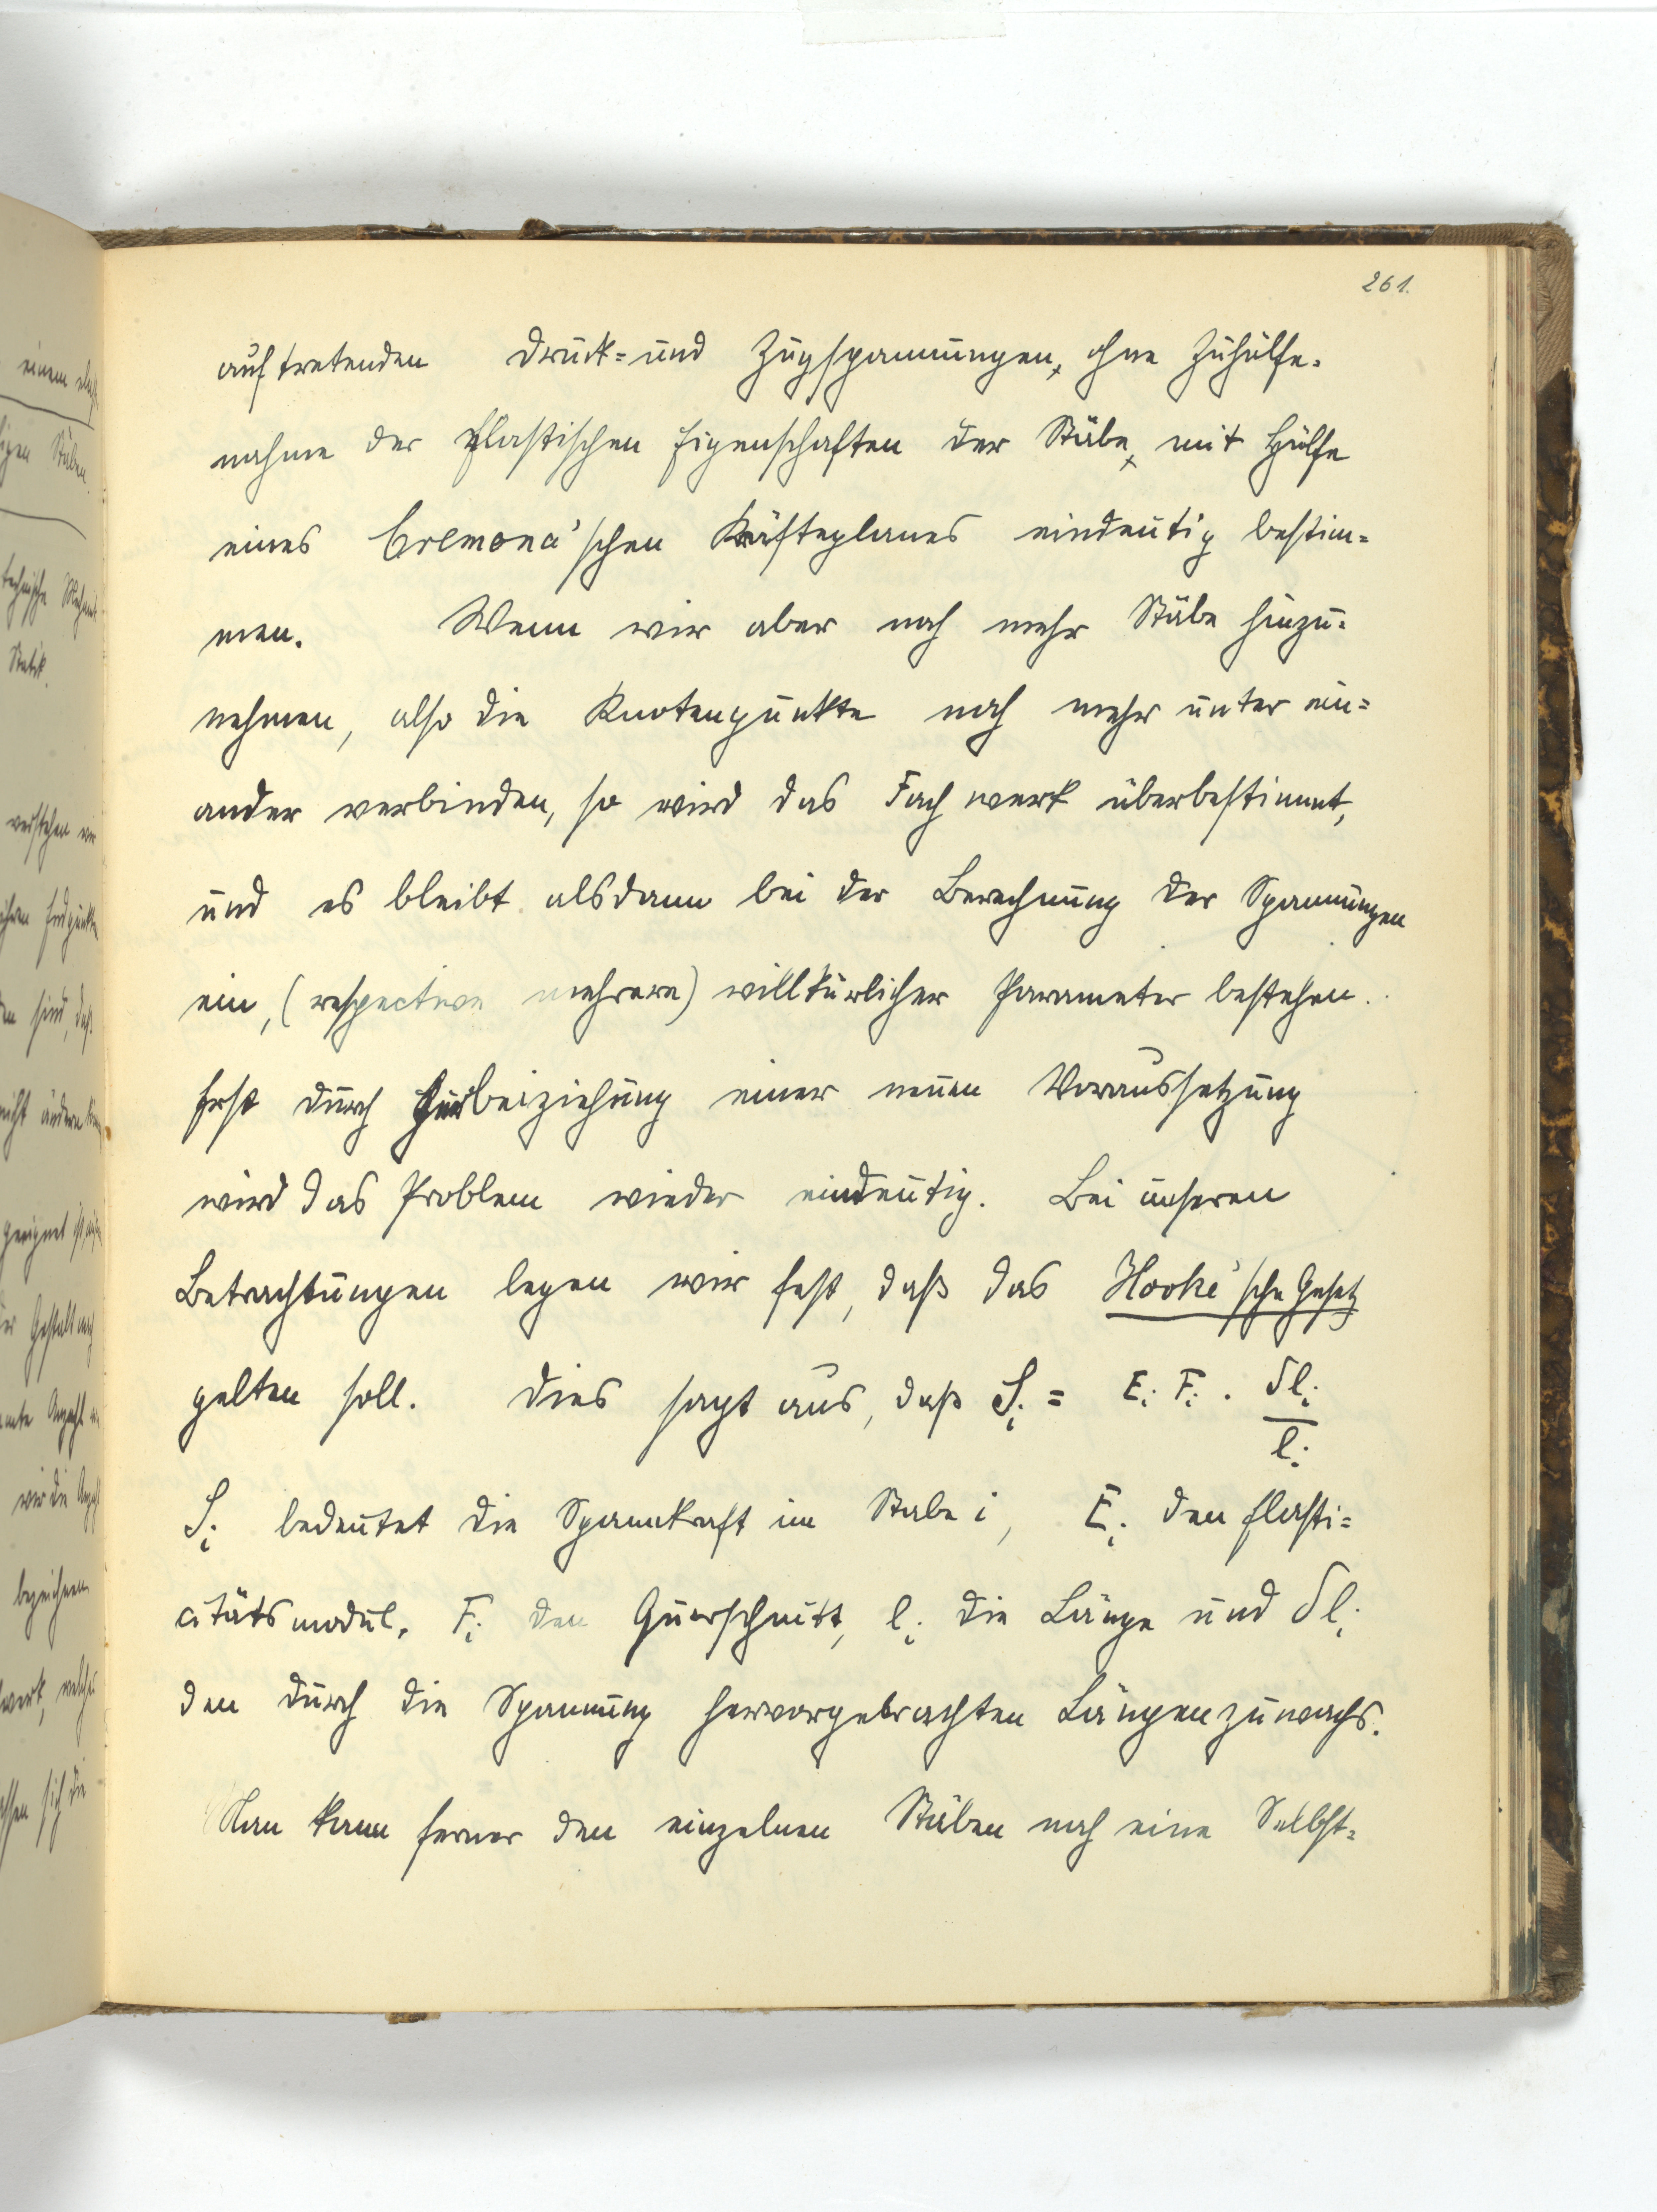 261.
auftretenden Druck= und Zugspannungen, ohne Zuhülfe=
nahme der elastischen Eigenschaften der Stäbe, mit Hülfe
eines Cremona'schen Kräfteplanes eindeutig bestim=
men. Wenn wir aber noch mehr Stäbe hinzu=
nehmen, also die Knotenpunkte noch mehr unter ein=
ander verbinden, so wird das Fachwerk überbestimmt,
und es bleibt alsdann bei der Berechnung der Spannungen
ein, (respective mehrere) willkürlicher Parameter bestehen.
Erst durch Herbeiziehung einer neuen Voraussetzung
wird das Problem wieder eindeutig. Bei unseren
Betrachtungen legen wir fest, daß das Hooke'sche Gesetz
gelten soll. Dies sagt aus, daß Sᵢ = Eᵢ Fᵢ · δlᵢ
lᵢ
Sᵢ bedeutet die Spannkraft im Stabe i, Eᵢ den Elasti=
citätsmodul, Fᵢ den Querschnitt, lᵢ die Länge und δlᵢ
den durch die Spannung hervorgebrachten Längenzuwachs.
Man kann ferner den einzelnen Stäben noch eine Selbst=